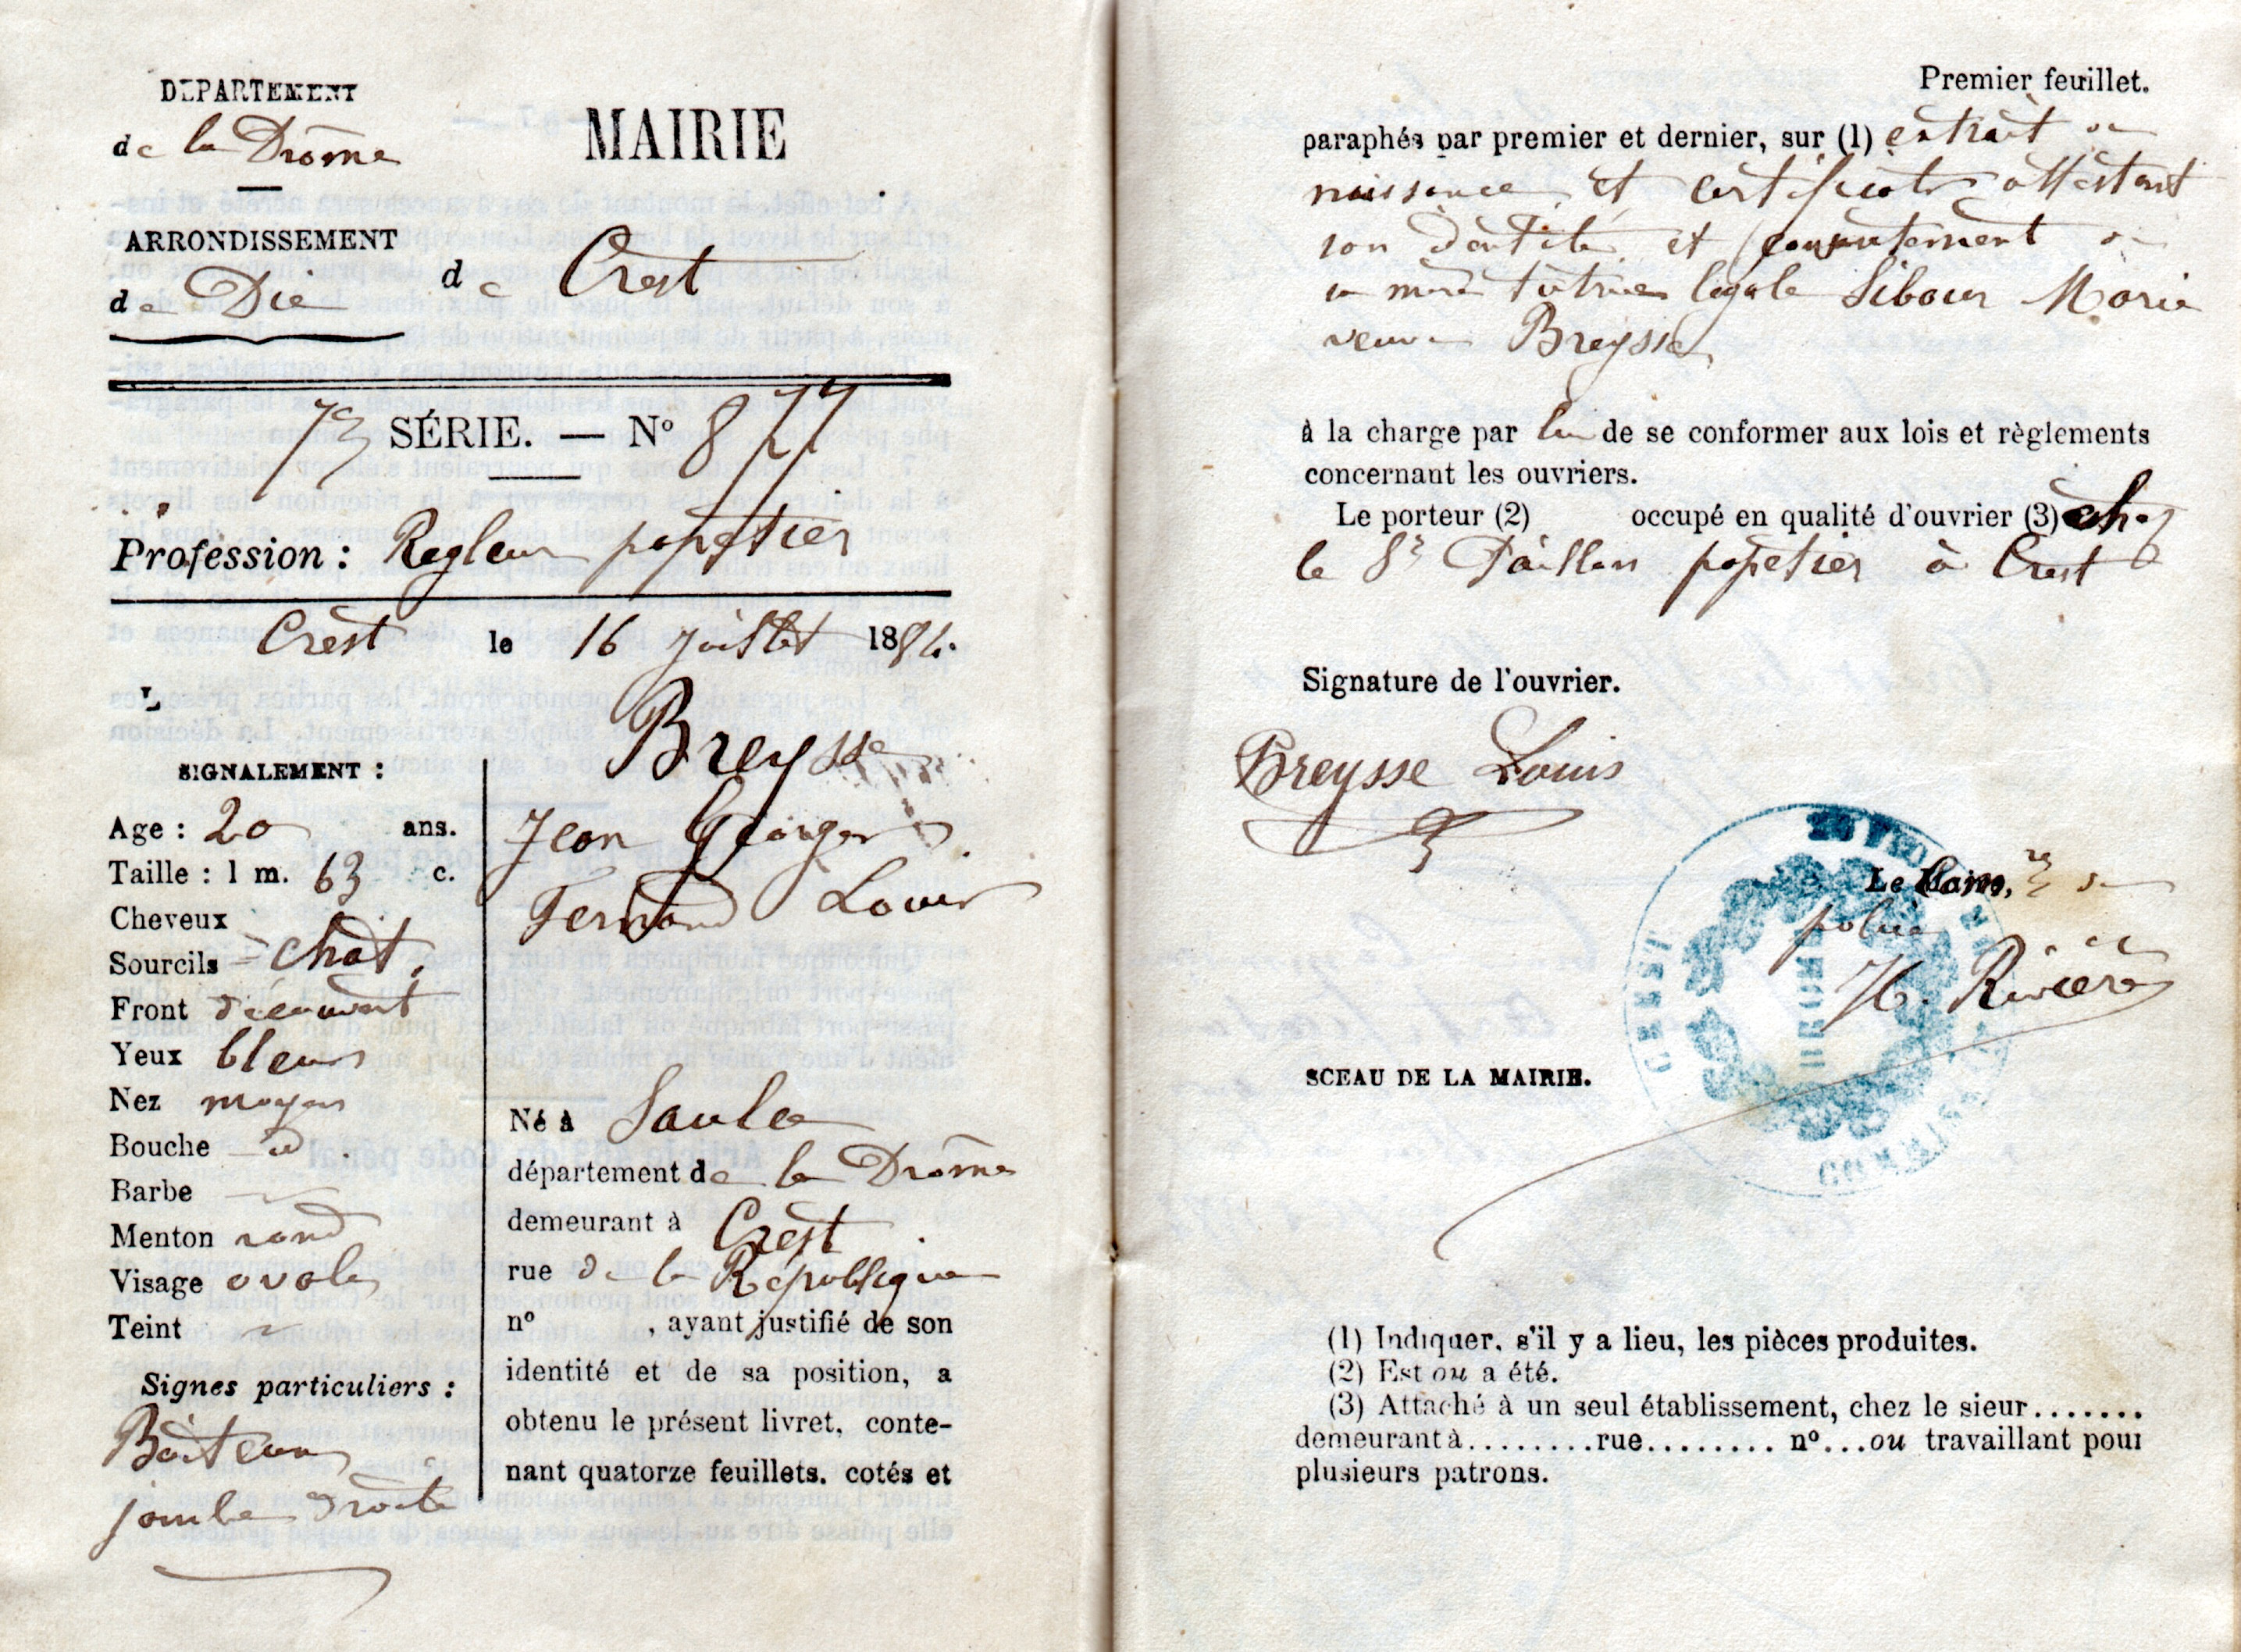 DÉPARTEMENT
de la Drôme
MAIRIE
ARRONDISSEMENT
de Die
de Crest
7e SÉRIE. — N° 877
Profession : Regleur papetier
Crest le 16 Juillet 1884.
L
Breysse
Jean Georges
Fernand Louis
SIGNALEMENT :
Age : 20 ans.
Taille : 1 m. 63 c.
Cheveux
Sourcils = chat.
Front découvert
Yeux bleus
Nez moyen
Bouche id
Barbe
Menton rond
Visage ovale
Teint
Signes particuliers :
Boiteux
jambe droite
Né à Saulce
département de la Drôme
demeurant à Crest
rue de la République
n° , ayant justifié de son
identité et de sa position, a
obtenu le présent livret, conte-
nant quatorze feuillets. cotés et
Premier feuillet.
paraphés par premier et dernier, sur (1) extrait de
naissance et certificat attestant
son identité et consentement de
sa mère tutrice légale Sibour Marie
veuve Breysse
à la charge par lui de se conformer aux lois et règlements
concernant les ouvriers.
Le porteur (2) occupé en qualité d'ouvrier (3) chez
le Sr papetier à Crest
Signature de l'ouvrier.
Breysse Louis
Le Maire,
Comre de
police
H. Rivière
SCEAU DE LA MAIRIE.
CREST
DROME
(1) Indiquer, s'il y a lieu, les pièces produites.
(2) Est ou a été.
(3) Attaché à un seul établissement, chez le sieur.......
demeurant à........rue........ n°...ou travaillant pour
plusieurs patrons.